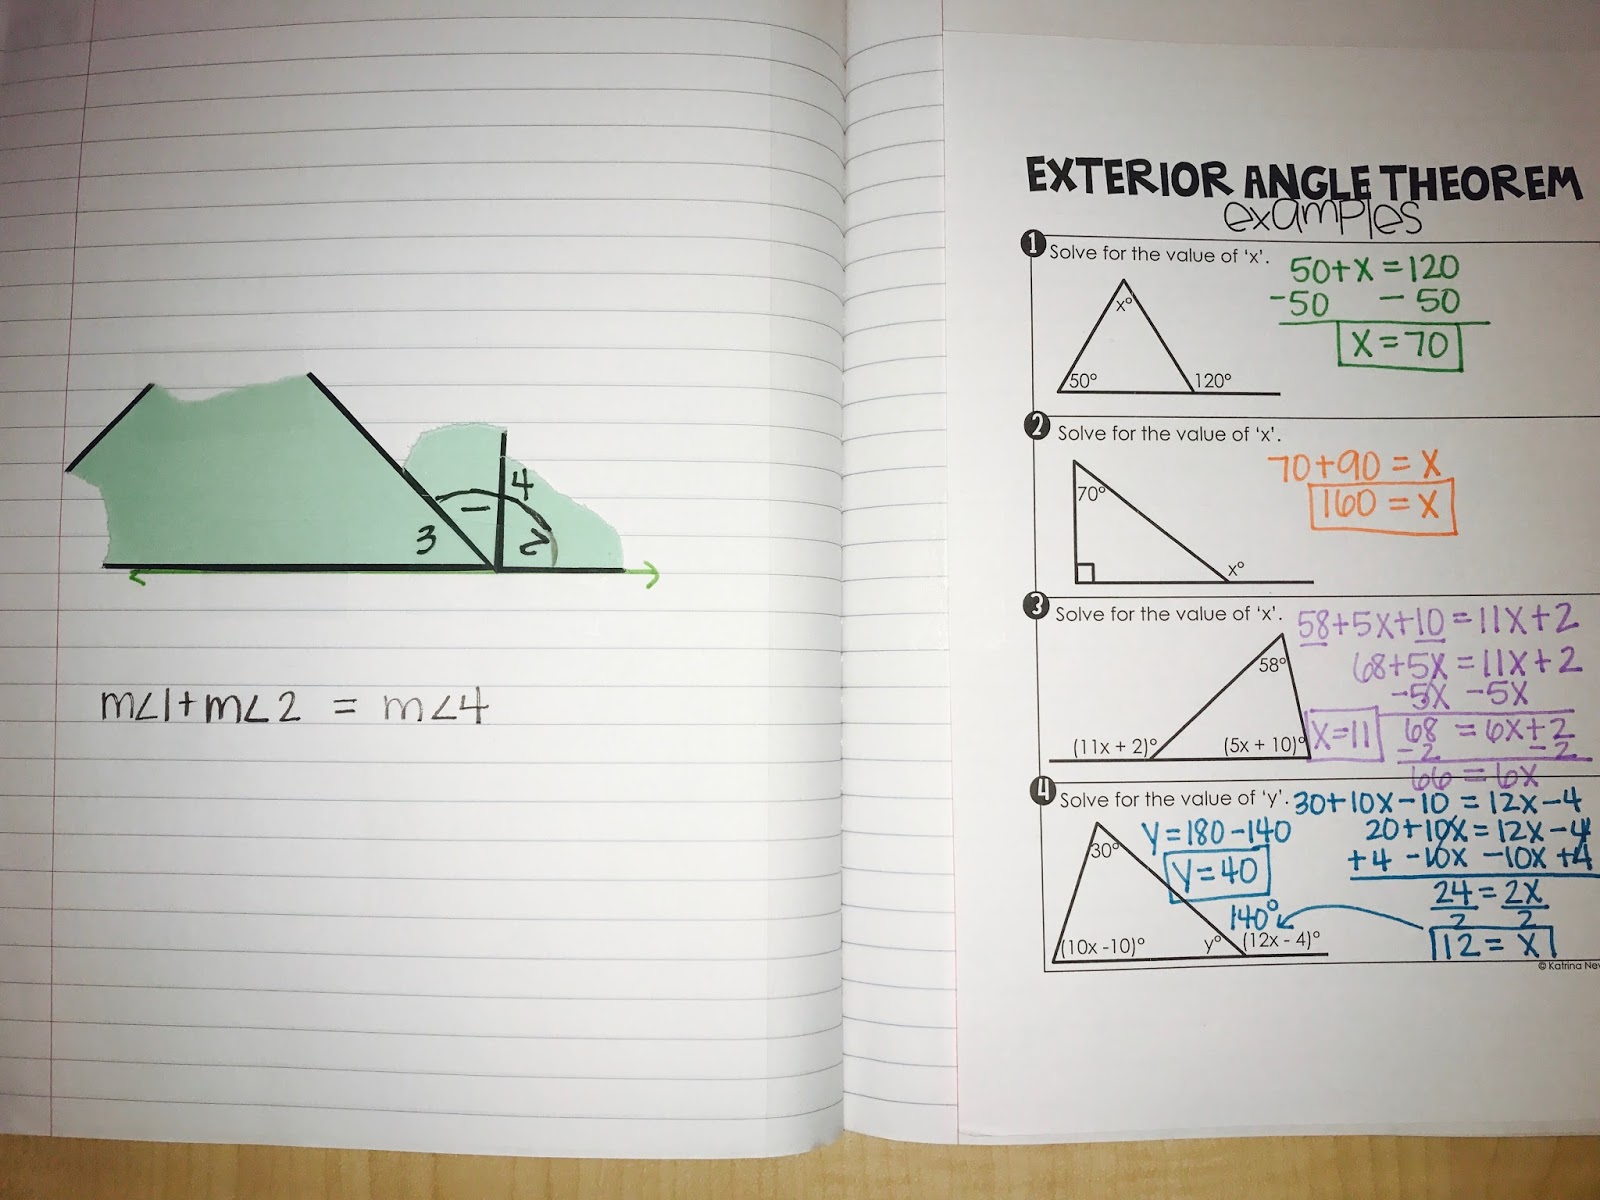 4
1
3
2
m∠1+m∠2 = m∠4
EXTERIOR ANGLE THEOREM
examples
1 Solve for the value of 'x'.
50+x=120
-50 -50
x=70
x°
50°
120°
2 Solve for the value of 'x'.
70+90=x
160=x
70°
x°
3 Solve for the value of 'x'.
58+5x+10=11x+2
68+5x=11x+2
-5x -5x
68=6x+2
-2 -2
66=6x
x=11
58°
(11x + 2)°
(5x + 10)°
4 Solve for the value of 'y'.
30+10x-10=12x-4
20+10x=12x-4
+4 -10x -10x +4
24=2x
2 2
12=x
y=180-140
y=40
140°
30°
(10x -10)°
y°
(12x - 4)°
© Katrina